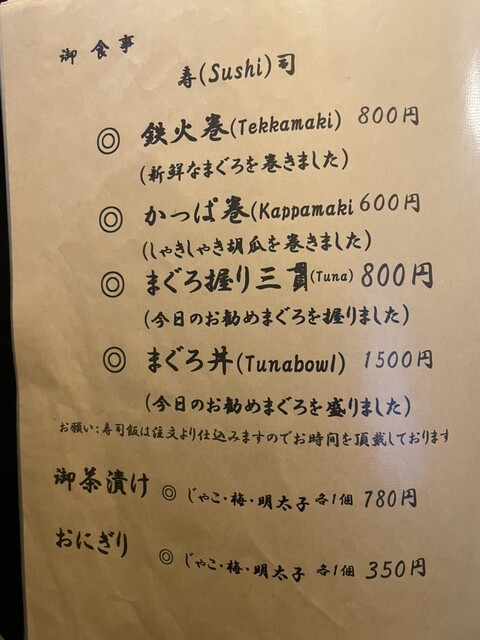 御食事
寿(Sushi)司
◎ 鉄火巻(Tekkamaki) 800円
(新鮮なまぐろを巻きました)
◎ かっぱ巻(Kappamaki 600円
(しゃきしゃき胡瓜を巻きました)
◎ まぐろ握り三貫(Tuna) 800円
(今日のお勧めまぐろを握りました)
◎ まぐろ丼(Tunabowl) 1500円
(今日のお勧めまぐろを盛りました)
お願い:寿司飯は注文より仕込みますのでお時間を頂戴しております
御茶漬け ◎ じゃこ・梅・明太子 各1個 780円
おにぎり ◎ じゃこ・梅・明太子 各1個 350円